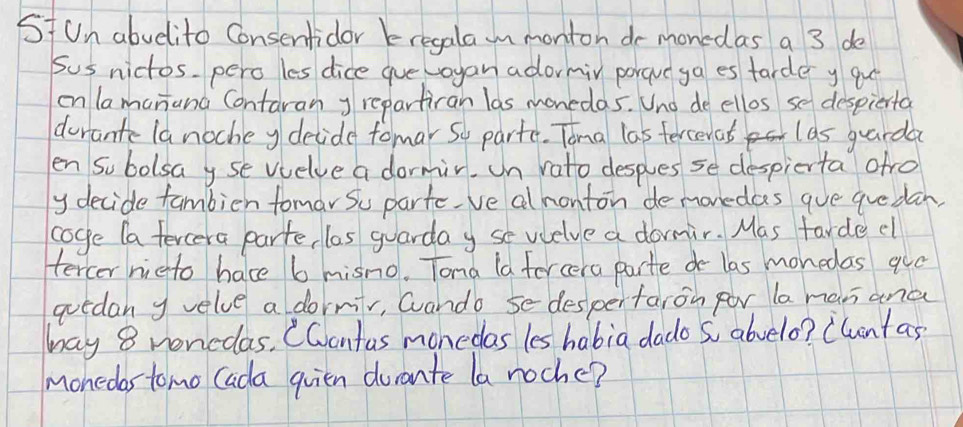 5- Un abuelito Consentidor le regala un monton de monedas a 3 de
Sus nictos. pero les dice que vayan a dormir porque ya es tarde y que
en la mañana Contaran y repartiran las monedas. Uno de ellos se despierta
durante la noche y decide tomar Su parte. Toma las terceras las guarda
en Su bolsa y se vuelve a dormir. Un rato despues se despierta otro
y decide tambien tomar Su parte. Ve al monton de monedas que quedan,
coge la tercera parte, las guarda y se vuelve a dormir. Mas tarde el
tercer nieto hace lo mismo. Toma la tercera parte de las monedas que
quedan y velve a dormir, Cuando se despertarón por la mañana
hay 8 monedas. ¿Cuantas monedas les habia dado Su abuelo? ¿Cuantas
Monedas tomo Cada quien durante la noche?